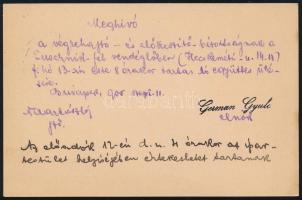 Meghívó
a végrehajtó- és előkészítő-bizottságnak a
féle vendéglőben (Kecskeméti u. 14. sz)
f. hó 13-án este 8 órakor tartandó együttes ülé-
sére.
Budapest, 908. szept. 11.
Nagy László
German Gyula
jző.
elnök
Az előadók 12-én d. u. 4 órakor az ipar-
testület helyiségében értekezletet tartanak